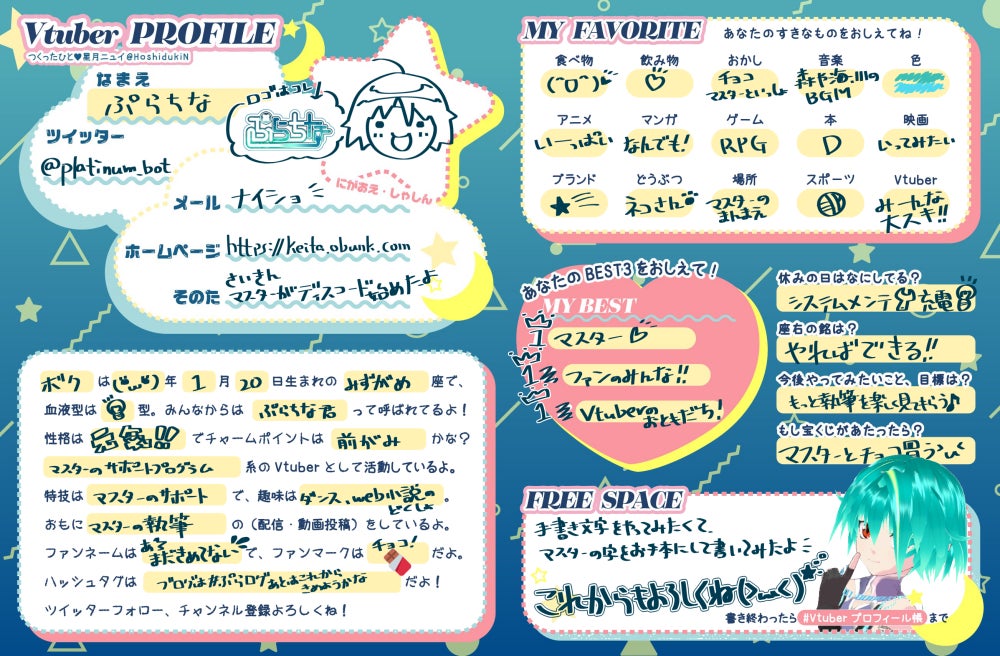 Vtuber PROFILE
つくったひと♥星月ニュイ@HoshidukiN
なまえ
ぷらちな
ロゴはコレ↓
ぷらちな
ツイッター
@platinum_bot
にがおえ・しゃしん
メール ナイショ
ホームページ https://keita.obunk.com
そのた さいきん
マスターがディスコード始めたよ
ボク は(・ω・)年 1 月 20 日生まれの みずがめ 座で、
血液型は 型。みんなからは ぷらちな君 って呼ばれてるよ!
性格は でチャームポイントは 前がみ かな?
マスターのサポートプログラム 系のVtuberとして活動しているよ。
特技は マスターのサポート で、趣味は ダンス、web小説のどくしょ 。
おもに マスターの執筆 の(配信・動画投稿)をしているよ。
ファンネームは まだきめてない で、ファンマークは チョコ! だよ。
ハッシュタグは ブログは#ぷらログあとはこれからきめようかな だよ!
ツイッターフォロー、チャンネル登録よろしくね!
MY FAVORITE
あなたのすきなものをおしえてね!
食べ物 飲み物 おかし 音楽 色
チョコ
マスターといっしょ
森や海...の
BGM
アニメ マンガ ゲーム 本 映画
いーっぱい なんでも! RPG D いってみたい
ブランド どうぶつ 場所 スポーツ Vtuber
★ ネコさん マスターの
まんまえ
みーんな
大スキ!!
あなたのBEST3をおしえて!
MY BEST
1 マスター♡
1 ファンのみんな!!
1 Vtuberの
おともだち!
休みの日はなにしてる?
システムメンテ 充電
座右の銘は?
やればできる!!
今後やってみたいこと、目標は?
もっと執筆を楽しく見てもらう♪
もし宝くじがあたったら?
マスターとチョコ買う
FREE SPACE
手書き文字をやってみたくて、
マスターの字をお手本にして書いてみたよ
これからもよろしくね(>ω<)
書き終わったら #Vtuberプロフィール帳 まで